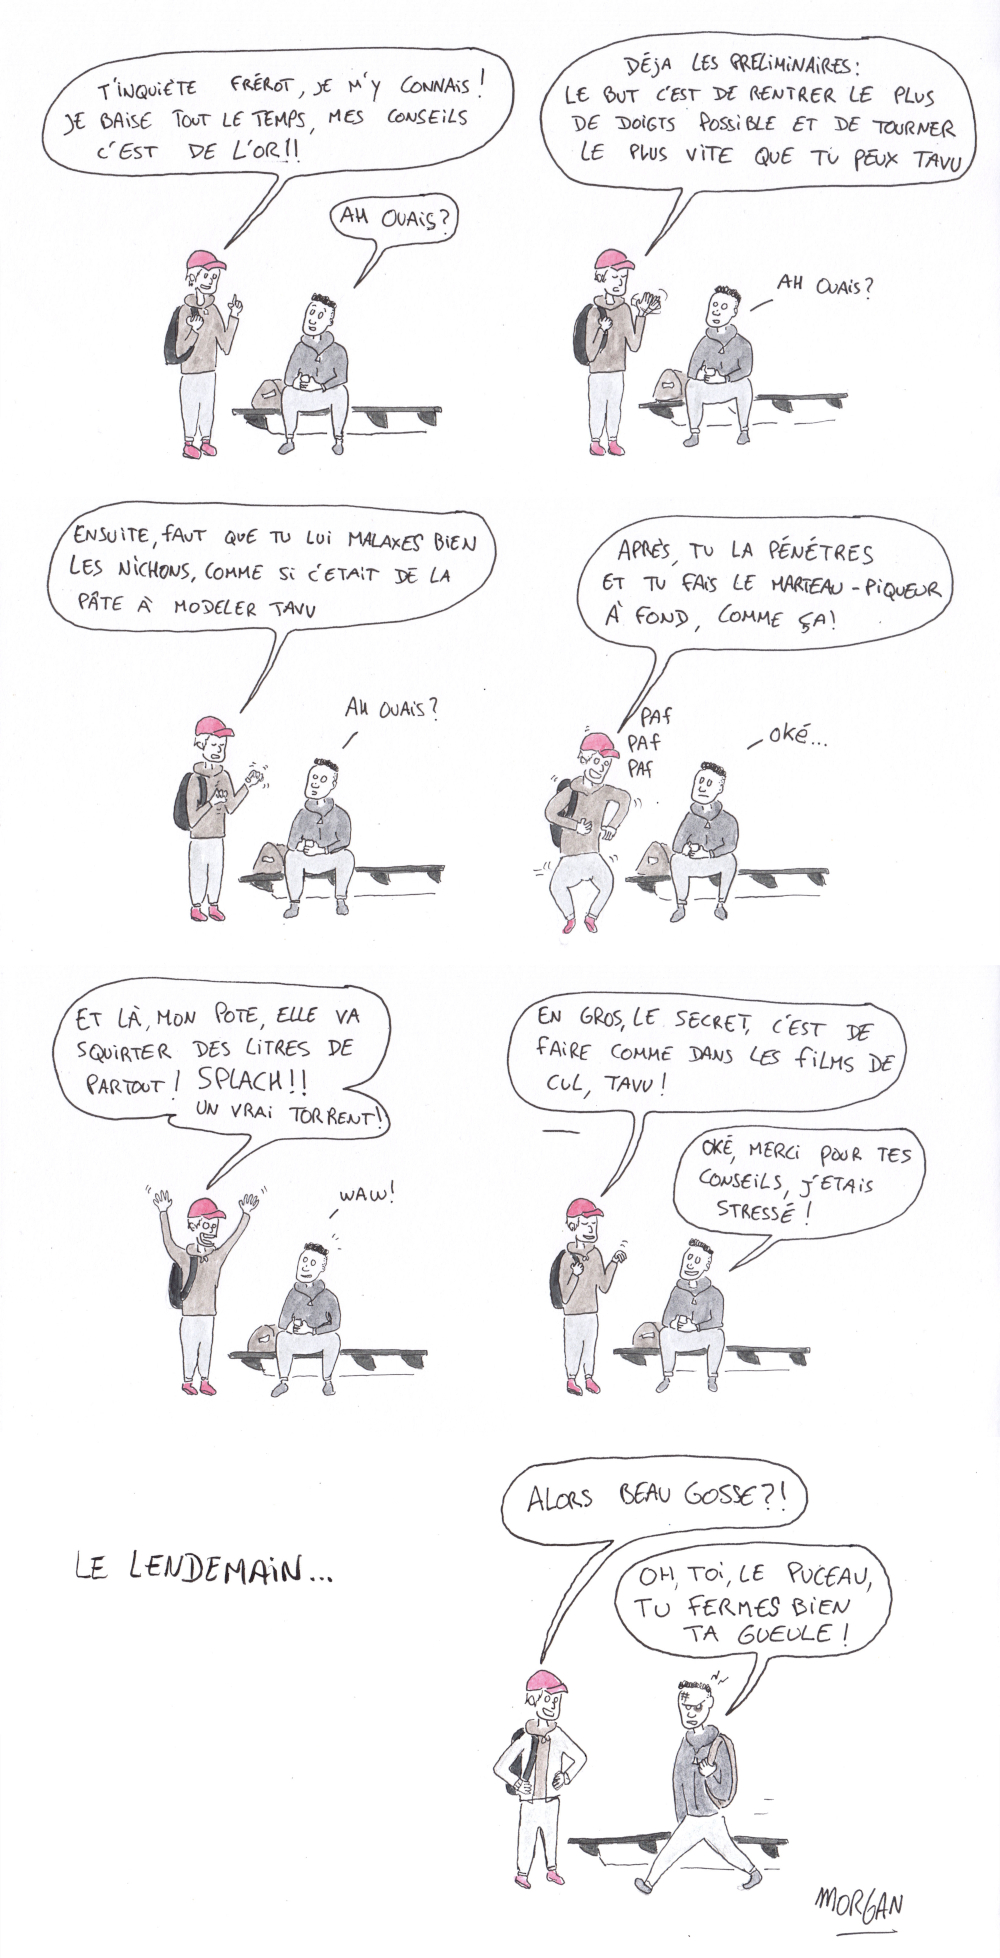 T'INQUIÈTE FRÉROT, JE M'Y CONNAIS!
JE BAISE TOUT LE TEMPS, MES CONSEILS
C'EST DE L'OR!!
AH OUAIS?
DÉJA LES PRÉLIMINAIRES:
LE BUT C'EST DE RENTRER LE PLUS
DE DOIGTS POSSIBLE ET DE TOURNER
LE PLUS VITE QUE TU PEUX TAVU
AH OUAIS?
ENSUITE, FAUT QUE TU LUI MALAXES BIEN
LES NICHONS, COMME SI C'ETAIT DE LA
PÂTE À MODELER TAVU
AH OUAIS?
APRÈS, TU LA PÉNÉTRES
ET TU FAIS LE MARTEAU-PIQUEUR
À FOND, COMME ÇA!
PAF
PAF
PAF
OKÉ...
ET LÀ, MON POTE, ELLE VA
SQUIRTER DES LITRES DE
PARTOUT! SPLACH!!
UN VRAI TORRENT!
WAW!
EN GROS, LE SECRET, C'EST DE
FAIRE COMME DANS LES FILMS DE
CUL, TAVU!
OKÉ, MERCI POUR TES
CONSEILS, J'ETAIS
STRESSÉ!
LE LENDEMAIN...
ALORS BEAU GOSSE?!
OH, TOI, LE PUCEAU,
TU FERMES BIEN
TA GUEULE!
MORGAN